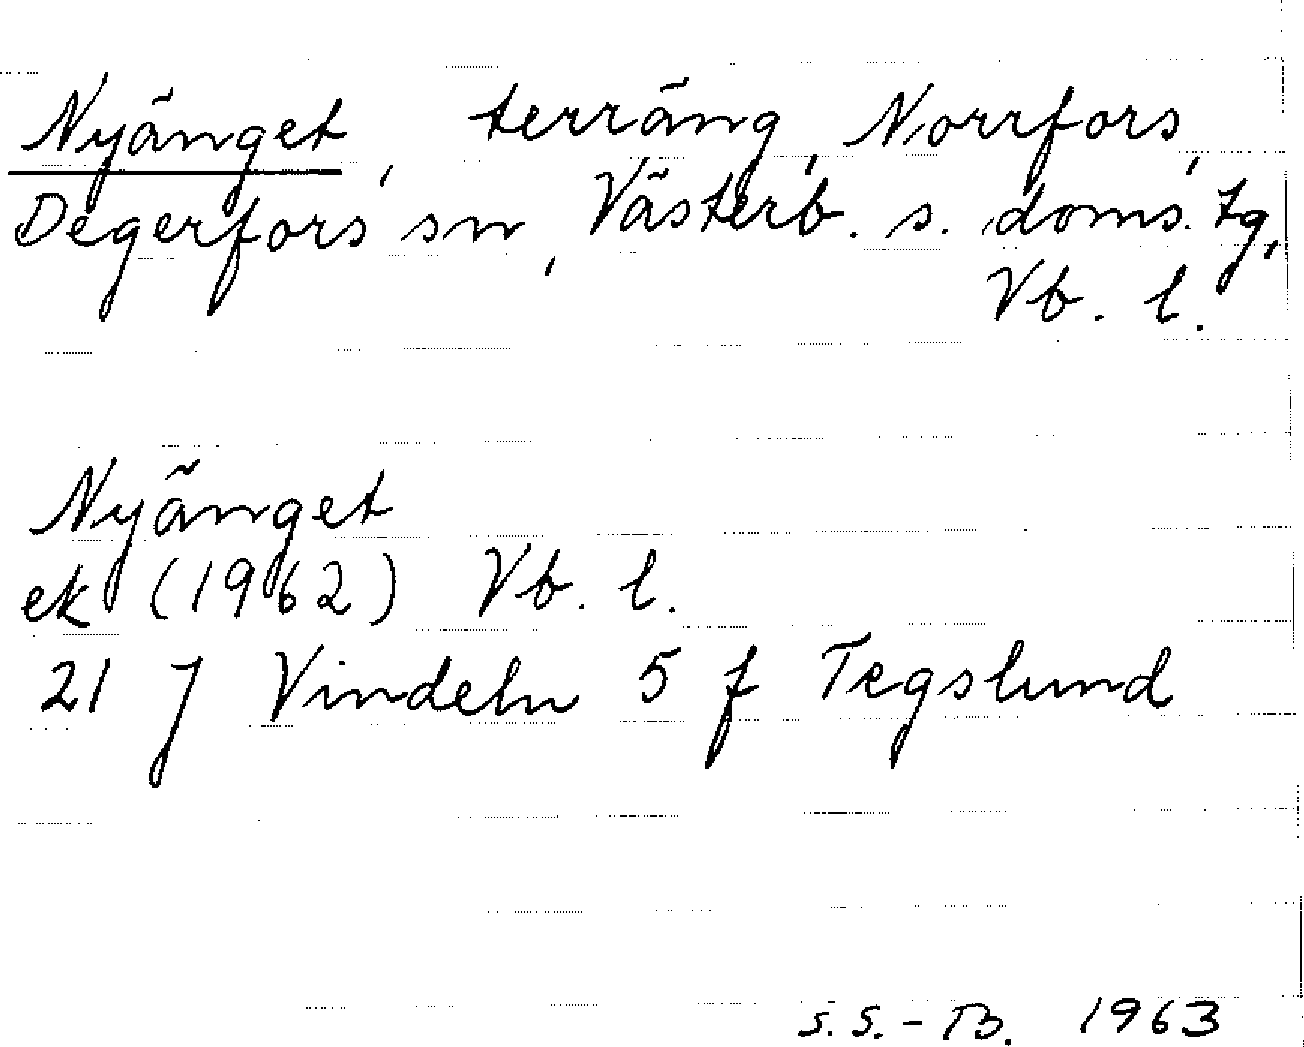 Nyänget, terräng, Norrfors,
Degerfors sn, Västerb. s. doms. tg,
Vb. l.
Nyänget
ek (1962) Vb. l.
21 J Vindeln 5 f Tegslund
S.S.-TB. 1963